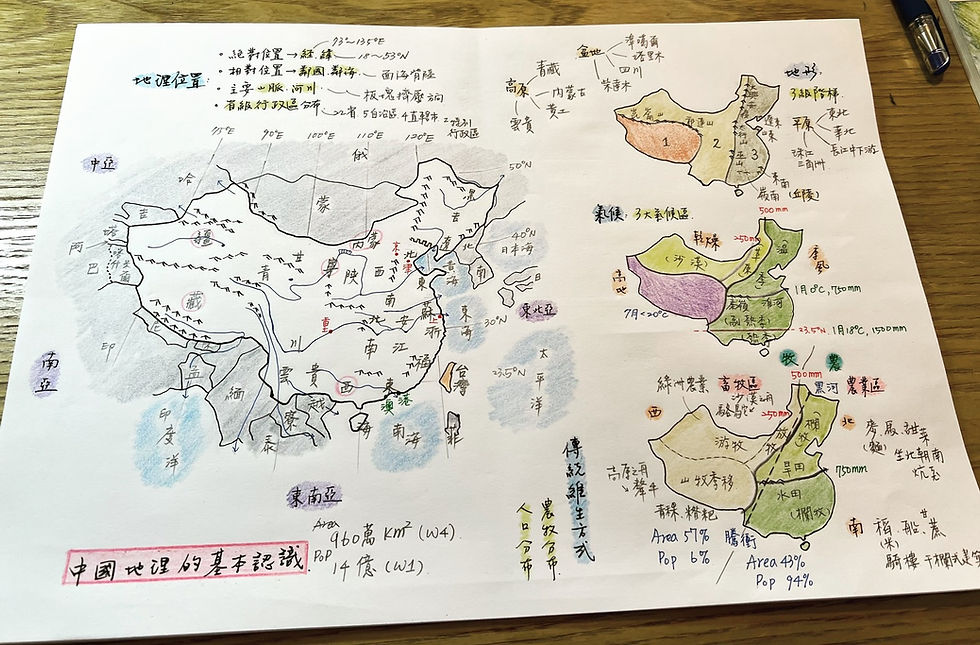 地理位置:
• 絕對位置→經.緯
73°~135°E
18~53°N
• 相對位置→鄰國.鄰海
面海背陸
• 主要山脈.河川
板塊擠壓方向
• 省級行政區分布
22省 5自治區 4直轄市 2特別
行政區
75°E 90°E 100°E 110°E 120°E
50°N
40°N
30°N
23.5°N
中亞
南亞
東南亞
東北亞
俄
蒙
哈
吉
塔
阿
巴
印
孟
緬
泰
寮
越
菲
日
日本海
黃海
東海
南海
太平洋
印度洋
台灣
疆
藏
青
甘
寧
陝
西
內蒙
黑
吉
遼
北
京
東
南
北
安
蘇
浙
江
南
福
川
重
雲
貴
西
東
港
澳
海
Area
960萬 km² (W4)
Pop
14億 (W1)
中國地理的基本認識
傳統維生方式
農牧分布
人口分布
盆地
準噶爾
塔里木
四川
柴達木
高原
青藏
內蒙古
黃土
雲貴
地形:
3級階梯
平原
東北
華北
長江中下游
珠江
三角洲
東南
嶺南(丘陵)
1 2 3
氣候: 3大氣候區
500mm
250mm
乾燥
(沙漠)
草原
溫
季
季風
高地
7月<20°C
秦嶺 淮河
1月0°C, 750mm
(副熱季)
(熱季)
23.5°N 1月18°C, 1500mm
牧 農
500mm
黑河 農業區
綠洲農業 畜牧區
沙漠之舟
駱駝
250mm
西
游牧
放牧
山牧季移
高原之舟
犛牛
青稞.糌粑
(欄牧)
旱田
水田
(欄牧)
750mm
北
麥
(麵)
甜菜
坐北朝南
炕
南
稻 船 甘蔗
(米)
騎樓 干欄式
Area 57%
Pop 6%
騰衝
Area 43%
Pop 94%